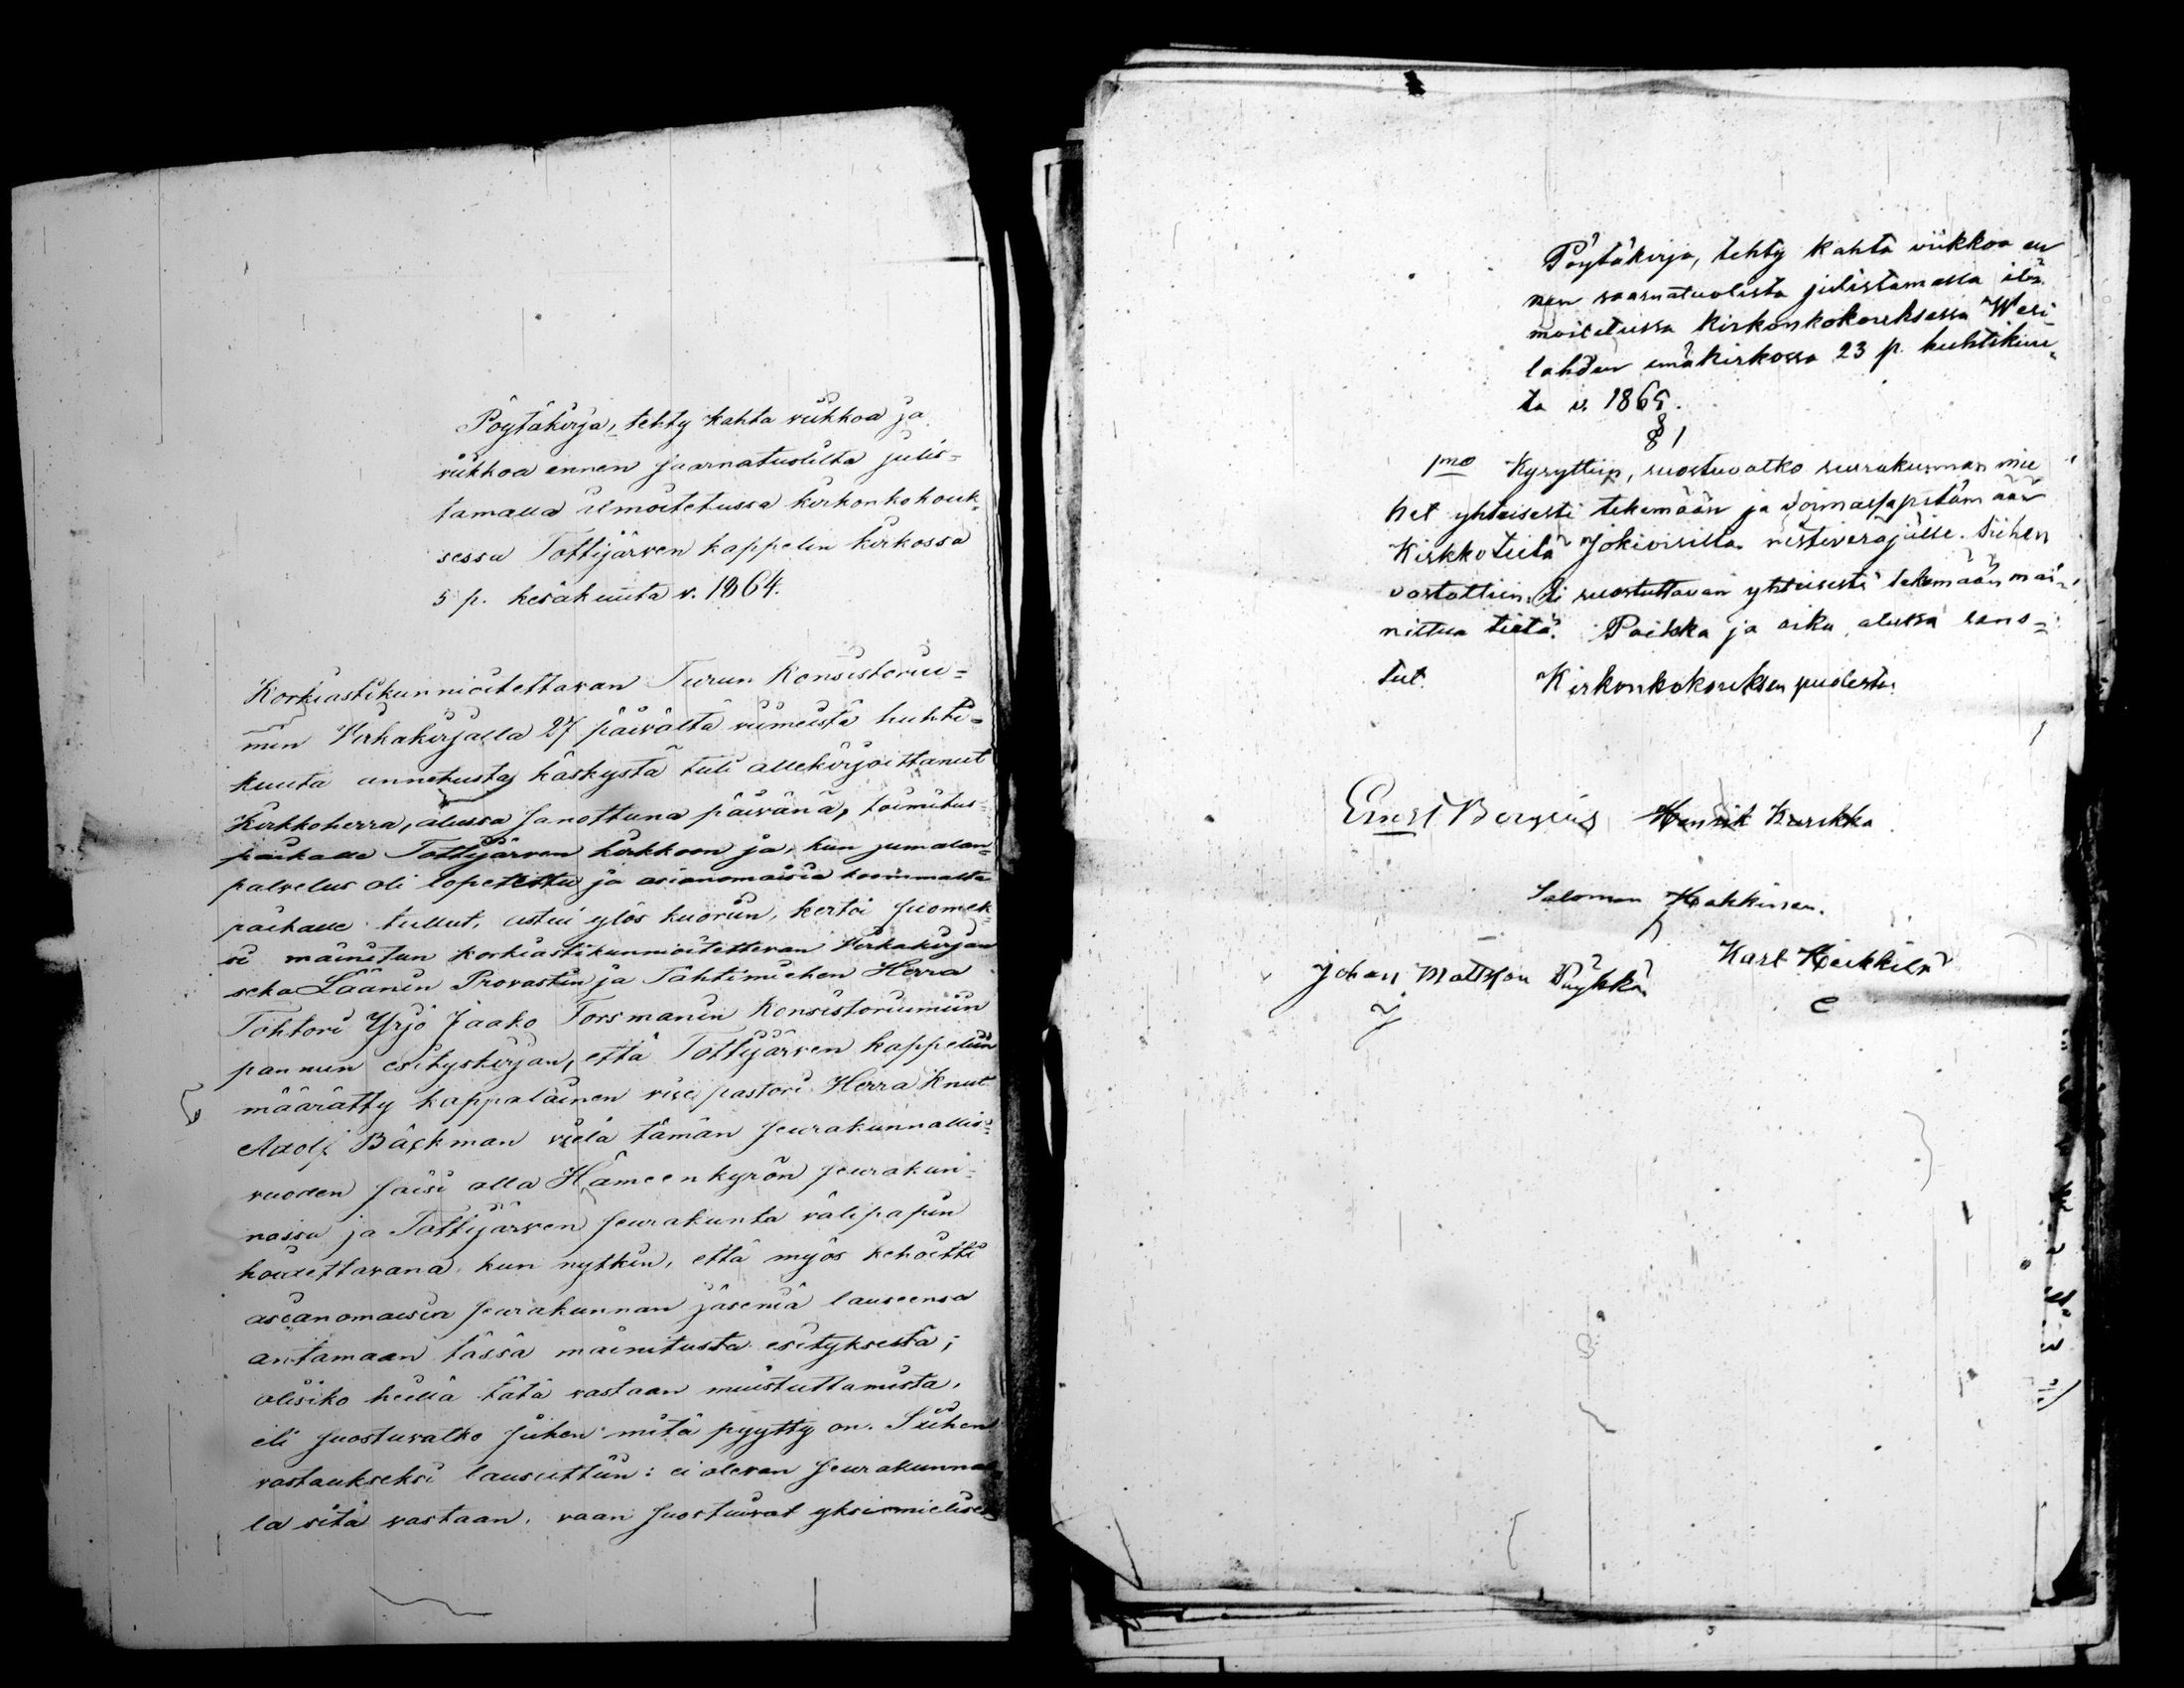 Pöytäkirja, tehty kahta viikkoa ja
viikkoa ennen saarnatuolilta julis=
tamalla ilmoitetussa kirkonkokouk=
sessa Tottijärven kappelin kirkossa
5 p. kesäkuuta v. 1864.
Korkiastikunnioitettavan Turun Konsistoriu=
min Virkakirjalla 27 päivältä viimeistä huhti=
kuuta annetusta käskystä tuli allekirjoittanut
Kirkkoherra, alussa sanottuna päivänä, toimitus=
paikalle Tottijärven kirkkoon ja, kun jumalan=
palvelus oli lopetettu ja asianomaisia
paikalle tullut, astui ylös kuoriin, kertoi suomek=
si mainitun korkiastikunnioitettavan Virkakirjan
seka Läänin Provastin ja Tähtimiehen Herra
Tohtori Yrjö Jaako Forsmanin Konsistoriumiin
pannun esityskirjan, että Tottijärven kappeliin
määrätty kappalainen vise pastori Herra Knut
Adolf Bäckman vielä tämän seurakunnallis=
vuoden saisi olla Hämeenkyrön seurakun=
nassa ja Tottijärven seurakunta välipapin
houdettavana, kun nytkin, että myös kehoitti
asianomaisia seurakunnan jäseniä lauseensa
antamaan tässä mainitusta esityksestä;
olisiko heillä tätä vastaan muistuttamista,
eli suostuvatko siihen mitä pyytty on. Siihen
vastaukseksi lausuttiin: ei olevan seurakunnal
la sitä vastaan, vaan suostuivat yksimielises
Pöytäkirja, tehty kahta viikkoa en
nen saarnatuolista julistamalla ilm
moitetussa kirkonkokouksessa Wesi
lahden emäkirkossa 23 p. huhtikuu
ta v. 1865.
§ 1
1mo Kysyttiin, suostuvatko seurakunnan mie
het yhteisesti tekemään ja voimassapitämään
Kirkkotietä Jokioisilta ristiverajälle. Siihen
vastattiin: ei suostuttavan yhteisesti tekemään mai=
nittua tietä. Paikka ja aika alussa sano=
tut.
Kirkonkokouksen puolesta:
Ernst Bergius Henrik Kurikka
Salomon Hakkinen.
Johan Mattsson Karl Heikkilä